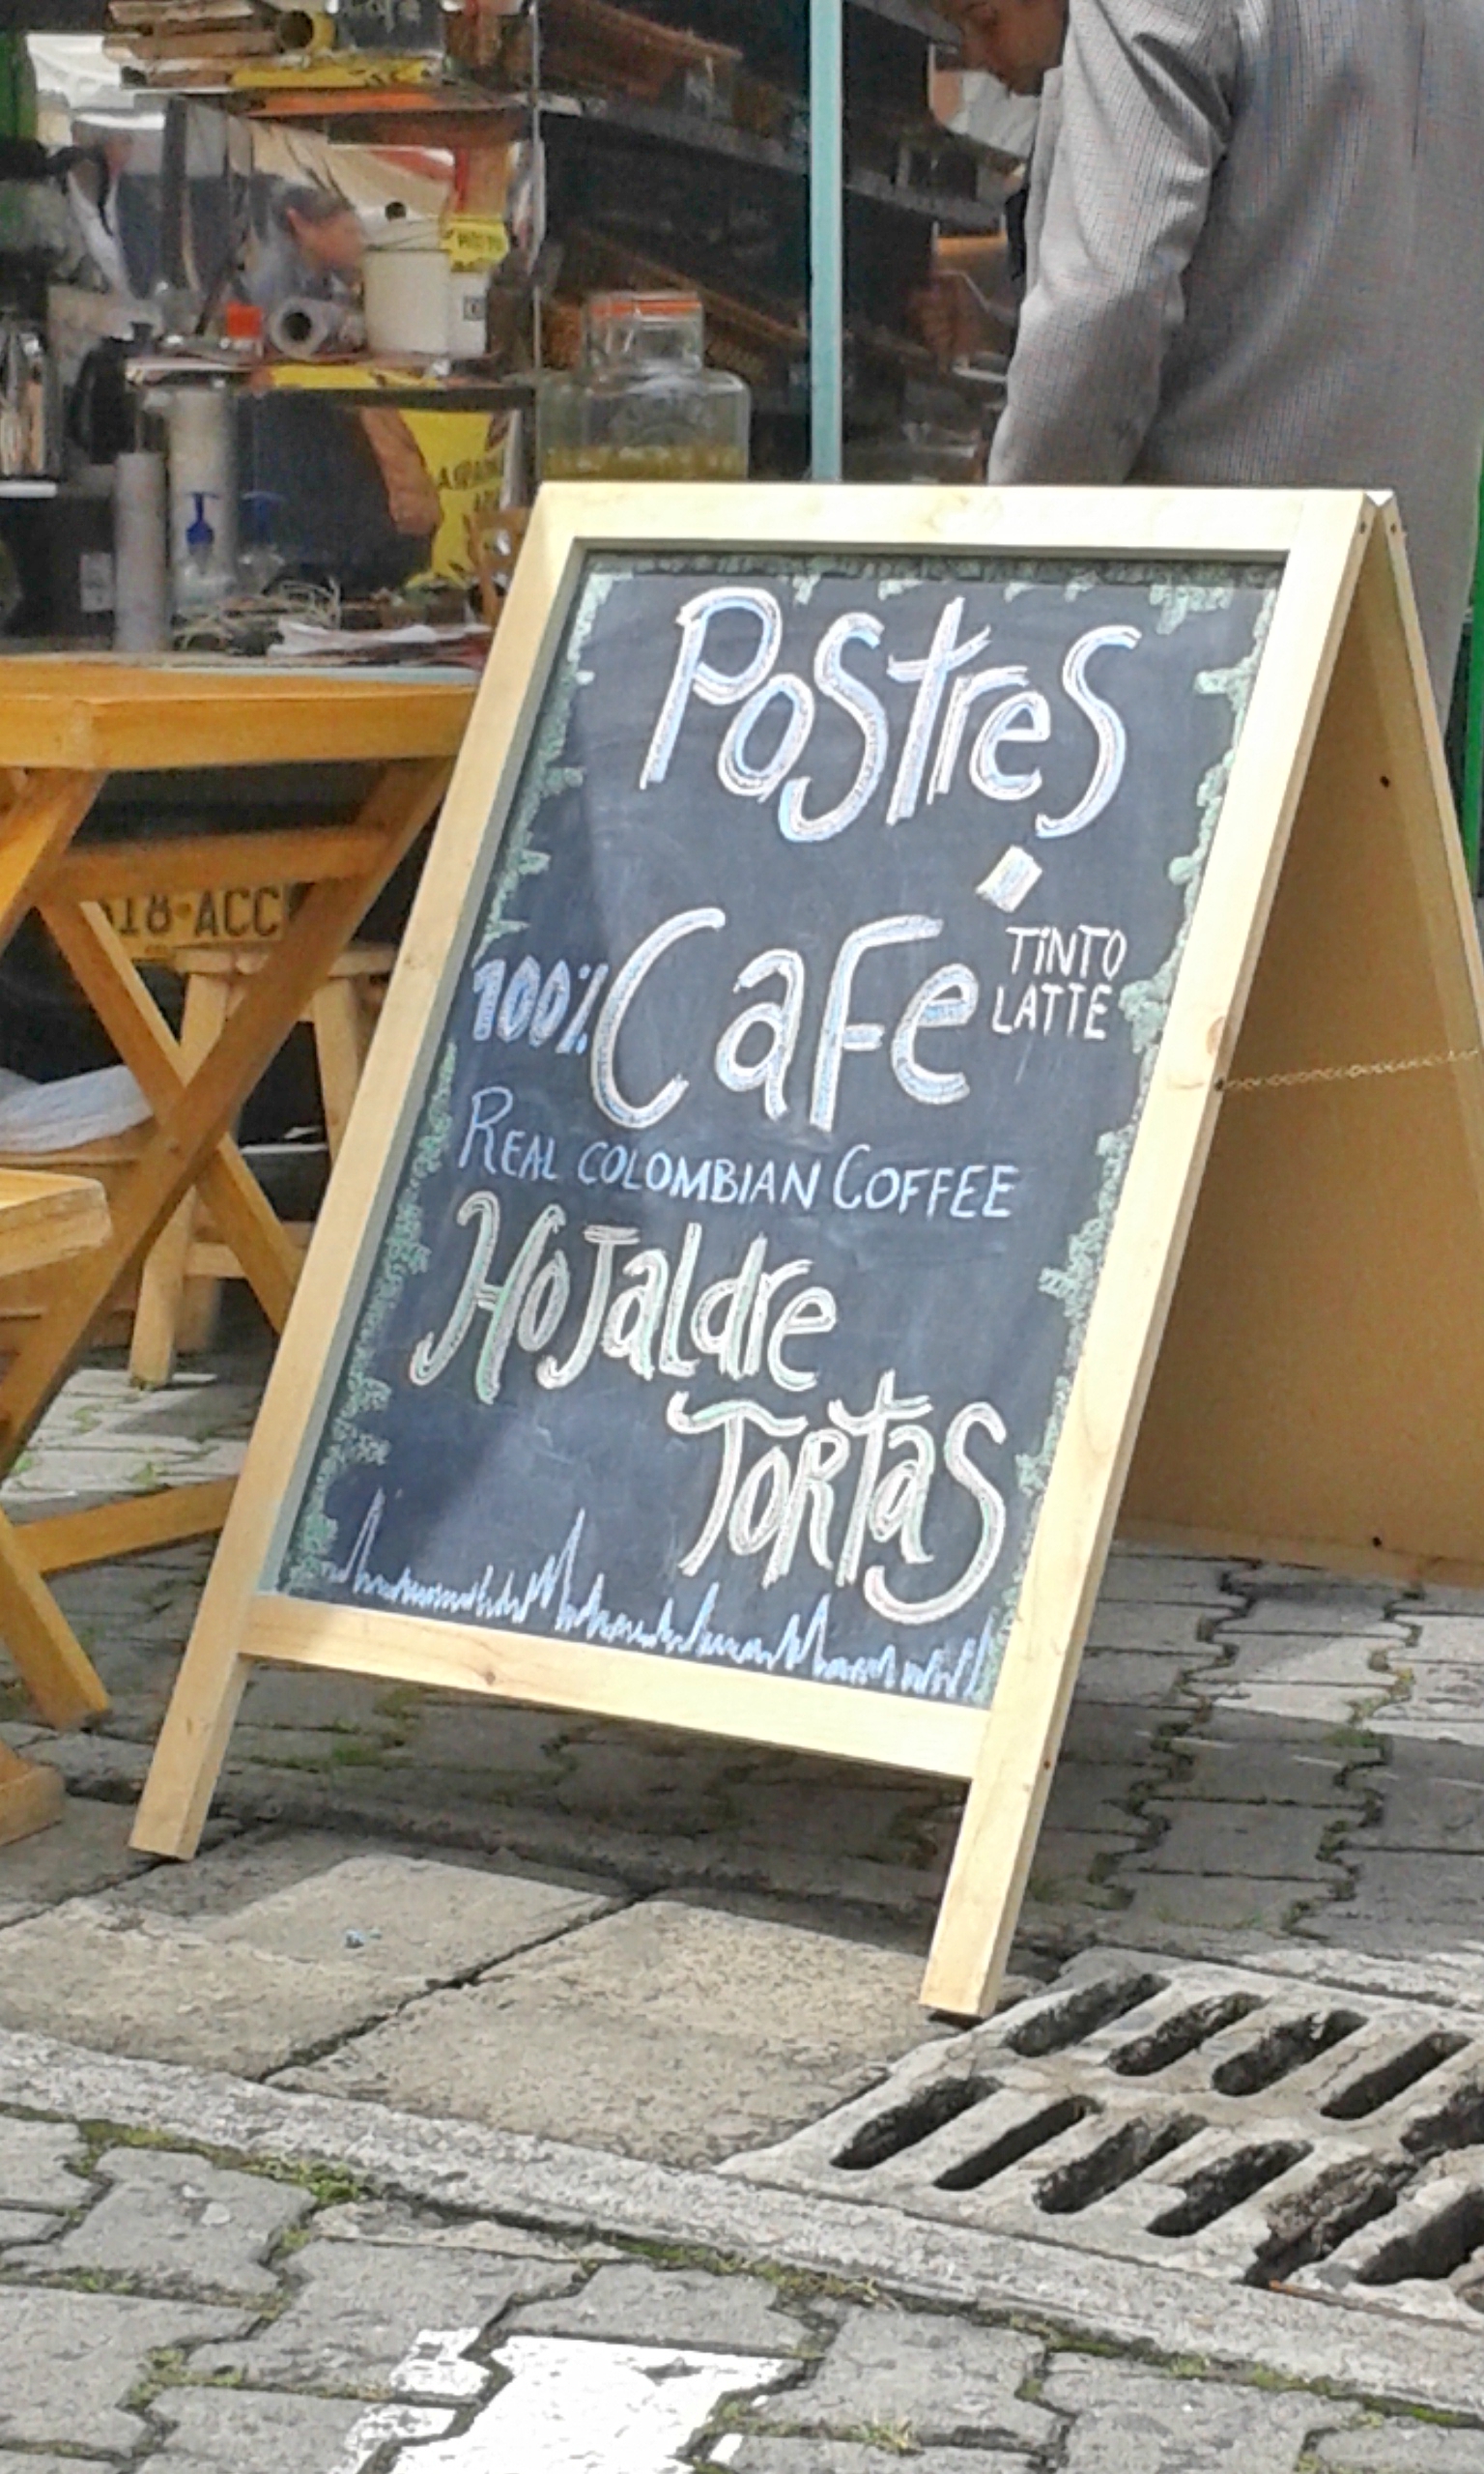 PostreS
100% CaFe
TINTO
LATTE
REAL COLOMBIAN COFFEE
HoJaldre
TORtaS
18·ACC